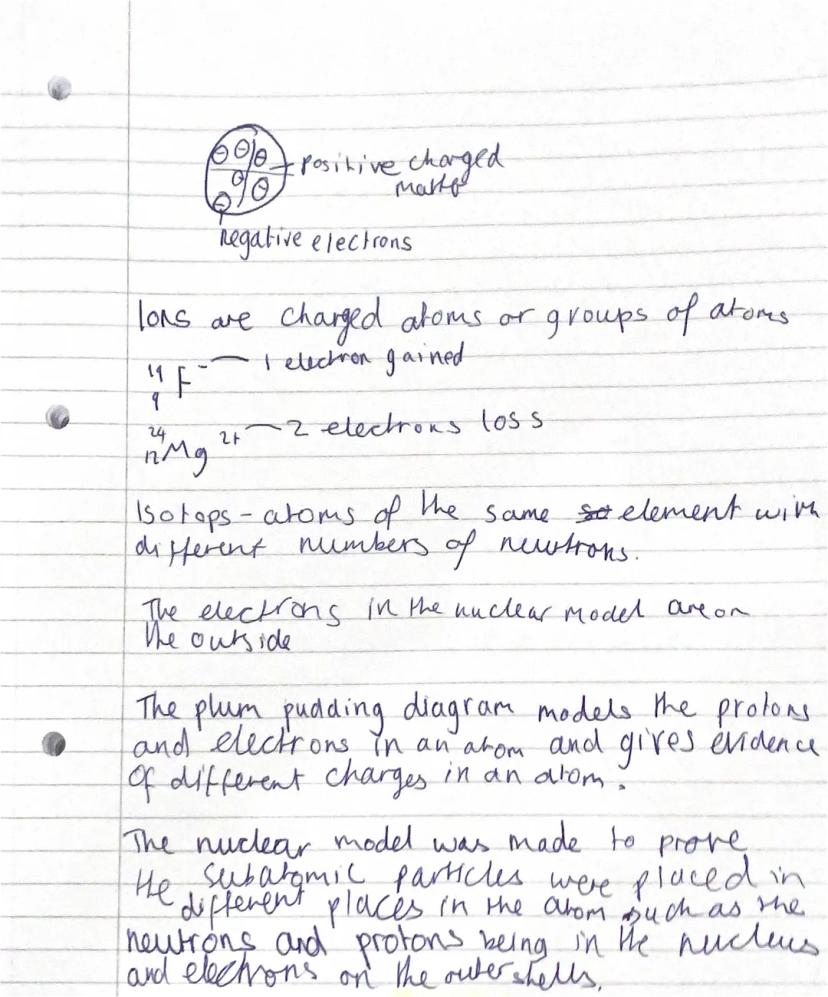 positive charged
matter
negative electrons
Ions are charged atoms or groups of atoms
19
F - 1 electron gained
9
24
Mg 2+ 2 electrons loss
12
Isotops - atoms of the same element with
different numbers of newtrons.
The electrons in the nuclear model are on
the outside
The plum pudding diagram models the protons
and electrons in an atom and gives evidence
of different charges in an atom.
The nuclear model was made to prove
the subatomic particles were placed in
different places in the atom such as the
neutrons and protons being in the nucleus
and electrons on the outer shells.